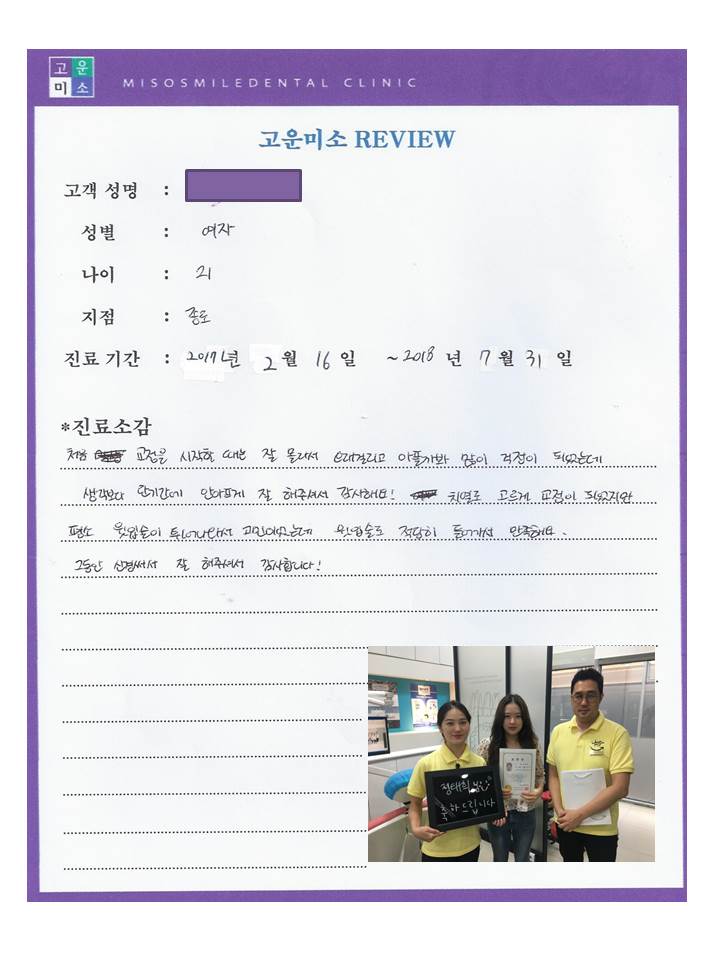 고운
미소
MISOSMILEDENTAL CLINIC
고운미소 REVIEW
고객 성명 :
성별 : 여자
나이 : 21
지점 : 종로
진료 기간 : 2017년 2월 16일 ~2018년 7월 31일
*진료소감
처음 교정을 시작할 때는 잘 몰라서 오래걸리고 아플까봐 많이 걱정이 되었는데
생각보다 단기간에 안아프게 잘 해주셔서 감사해요! 치열도 고르게 교정이 되었지만
평소 윗입술이 튀어나와서 고민이었는데 윗입술도 적당히 들어가서 만족해요.
그동안 신경써서 잘 해주셔서 감사합니다!
정태희님
축하드립니다